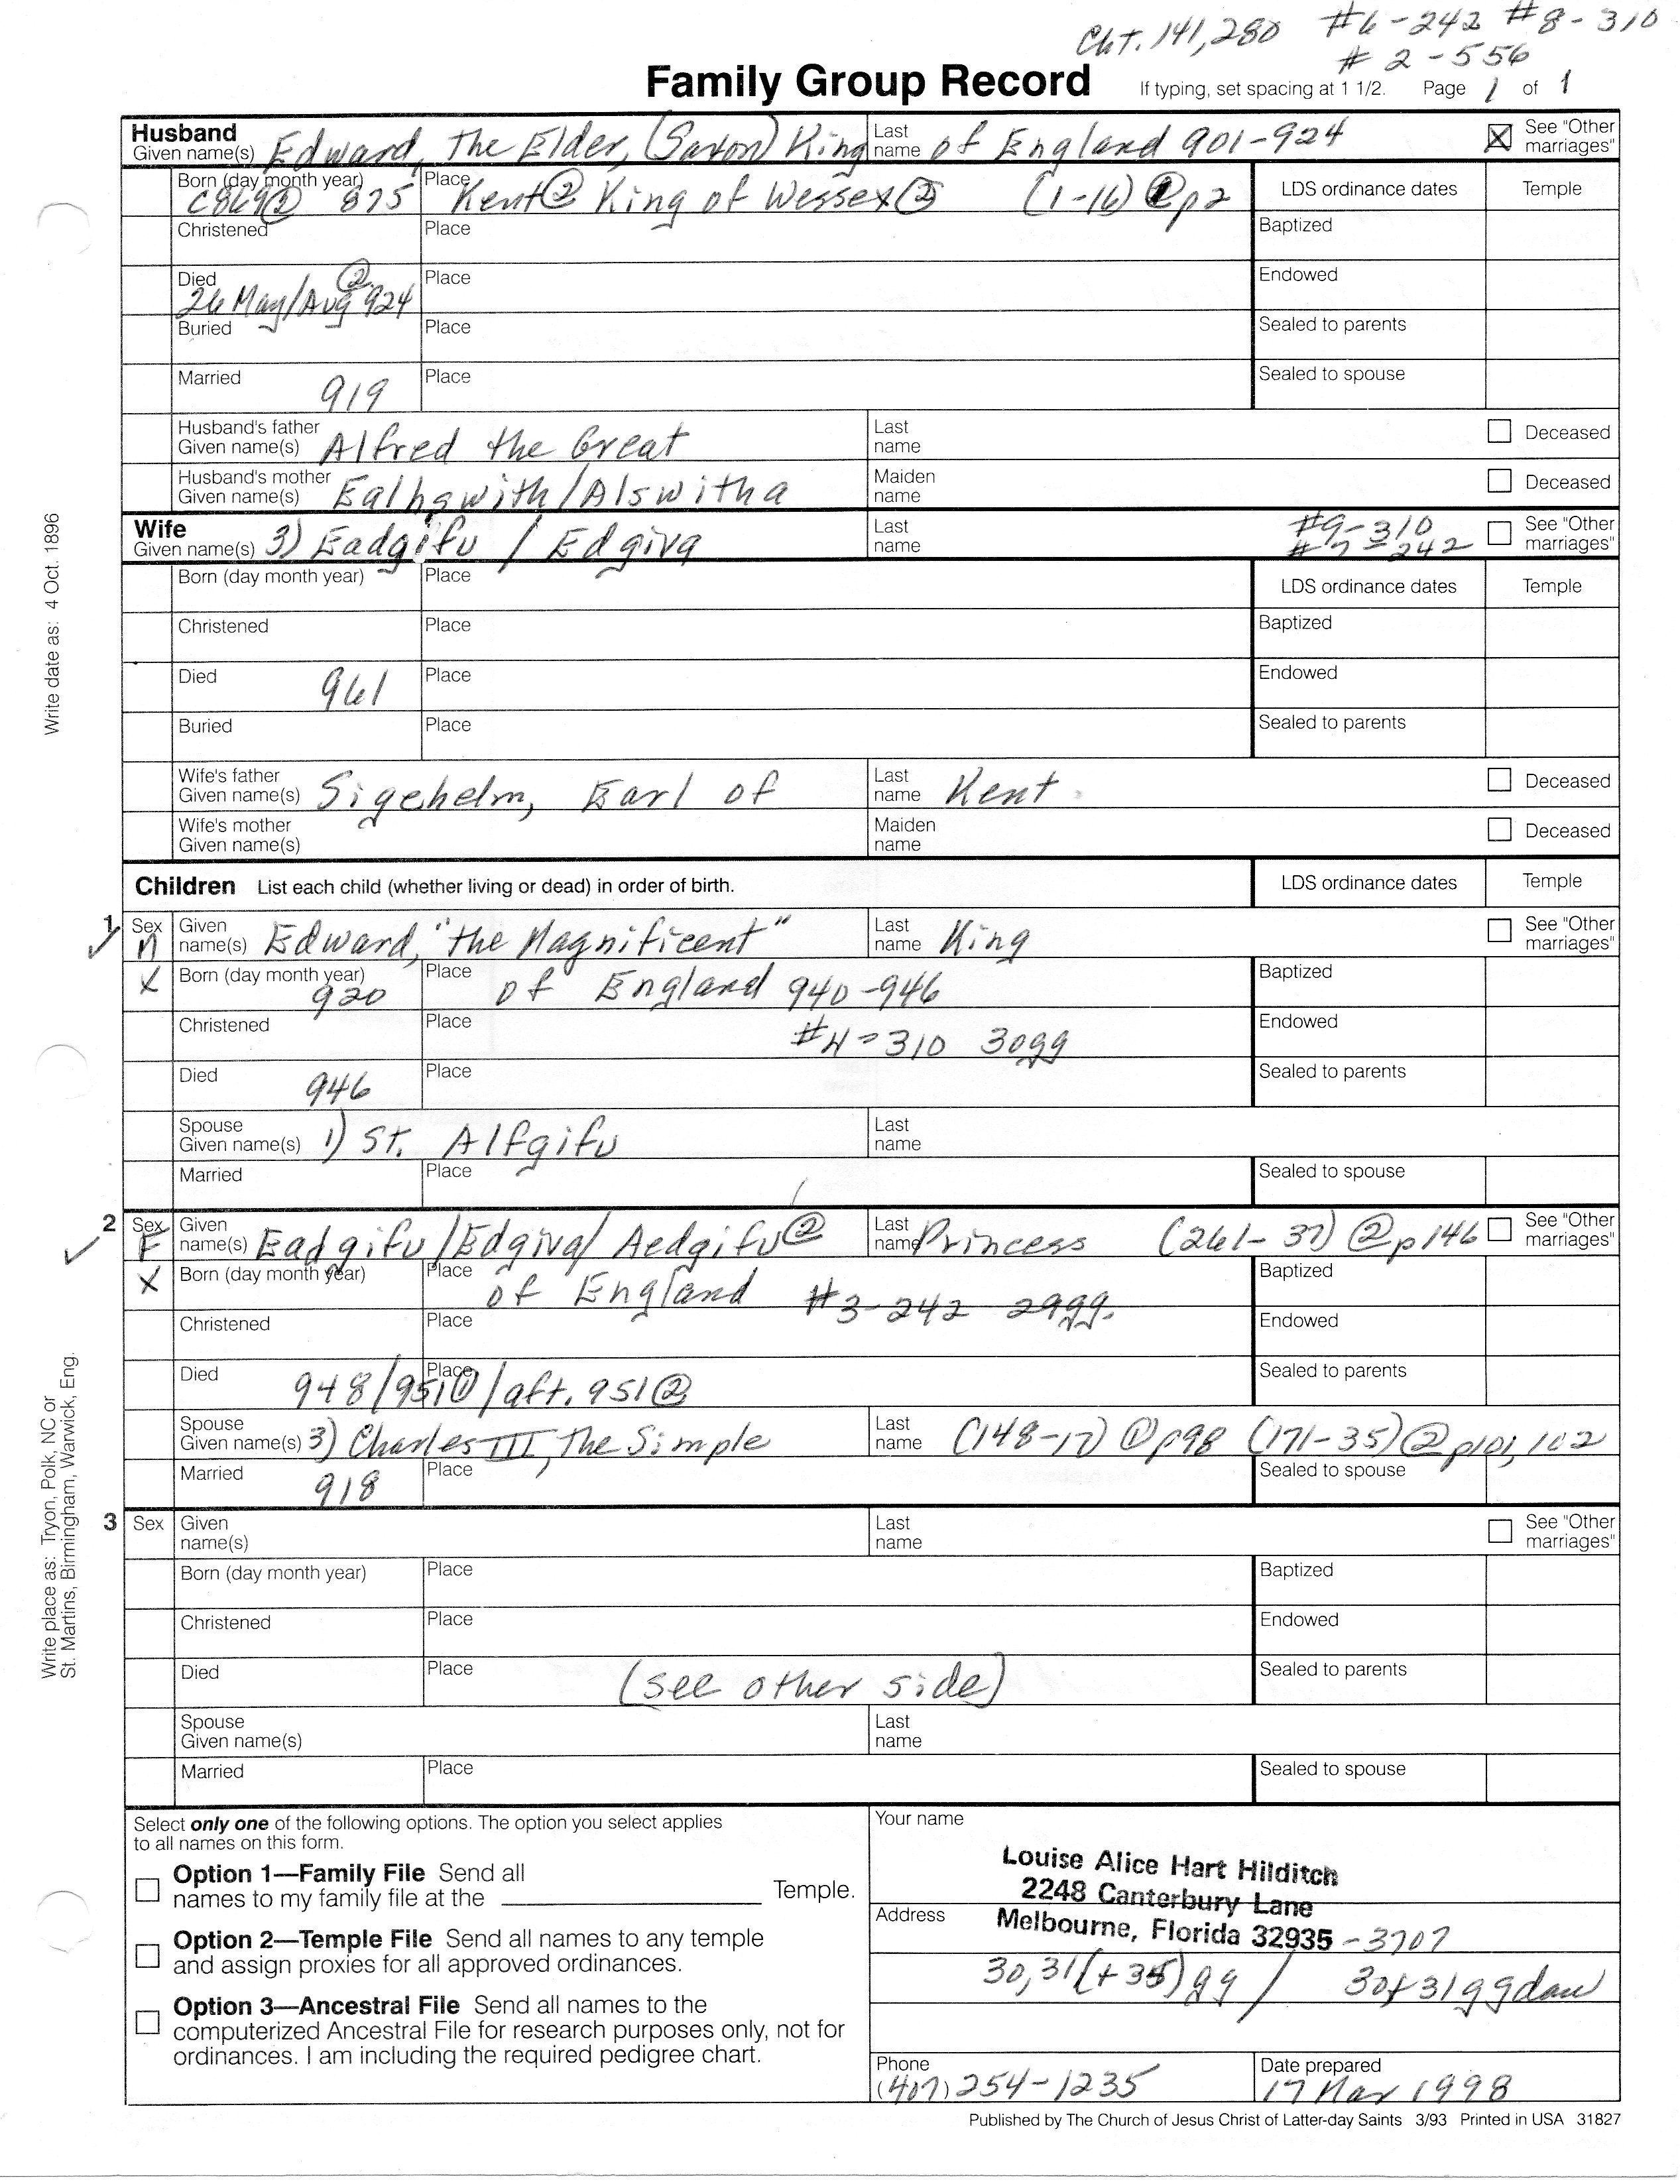 Cht. 141,280 #6-242 #8-310
# 2-556
Family Group Record If typing, set spacing at 1 1/2. Page 1 of 1
Husband
Given name(s) Edward, The Elder, (Saxon) King Last name of England 901-924 See "Other marriages"
Born (day month year) c869② 875 Place Kent② King of Wessex② (1-16) ①p2 LDS ordinance dates Temple
Christened Place Baptized
Died 26 May/Aug② 924 Place Endowed
Buried Place Sealed to parents
Married 919 Place Sealed to spouse
Husband's father Given name(s) Alfred the Great Last name Deceased
Husband's mother Given name(s) Ealhswith/Alswitha Maiden name Deceased
Wife
Given name(s) 3) Eadgifu / Edgiva Last name #9-310 #7-242 See "Other marriages"
Born (day month year) Place LDS ordinance dates Temple
Christened Place Baptized
Died 961 Place Endowed
Buried Place Sealed to parents
Wife's father Given name(s) Sigehelm, Earl of Last name Kent Deceased
Wife's mother Given name(s) Maiden name Deceased
Children List each child (whether living or dead) in order of birth. LDS ordinance dates Temple
1 Sex M Given name(s) Edward, "the Magnificent" Last name King See "Other marriages"
X Born (day month year) 920 Place of England 940-946 Baptized
Christened Place #4-310 30gg Endowed
Died 946 Place Sealed to parents
Spouse Given name(s) 1) St. Alfgifu Last name
Married Place Sealed to spouse
2 Sex F Given name(s) Eadgifu/Edgiva/Aedgifu② Last name Princess (261-37) ②p146 See "Other marriages"
X Born (day month year) Place of England #3-242 29gg. Baptized
Christened Place Endowed
Died 948/951①/aft. 951② Place Sealed to parents
Spouse Given name(s) 3) Charles III, The Simple Last name (148-17) ①p98 (171-35)②p101, 102
Married 918 Place Sealed to spouse
3 Sex Given name(s) Last name See "Other marriages"
Born (day month year) Place Baptized
Christened Place Endowed
Died Place (see other side) Sealed to parents
Spouse Given name(s) Last name
Married Place Sealed to spouse
Write date as: 4 Oct. 1896
Write place as: Tryon, Polk, NC or
St. Martins, Birmingham, Warwick, Eng.
Select only one of the following options. The option you select applies
to all names on this form.
Option 1—Family File Send all
names to my family file at the Temple.
Option 2—Temple File Send all names to any temple
and assign proxies for all approved ordinances.
Option 3—Ancestral File Send all names to the
computerized Ancestral File for research purposes only, not for
ordinances. I am including the required pedigree chart.
Your name
Louise Alice Hart Hilditch
2248 Canterbury Lane
Address Melbourne, Florida 32935 -3707
30,31(+35)gg / 30+31ggdau
Phone (407) 254-1235
Date prepared 17 Mar 1998
Published by The Church of Jesus Christ of Latter-day Saints 3/93 Printed in USA 31827